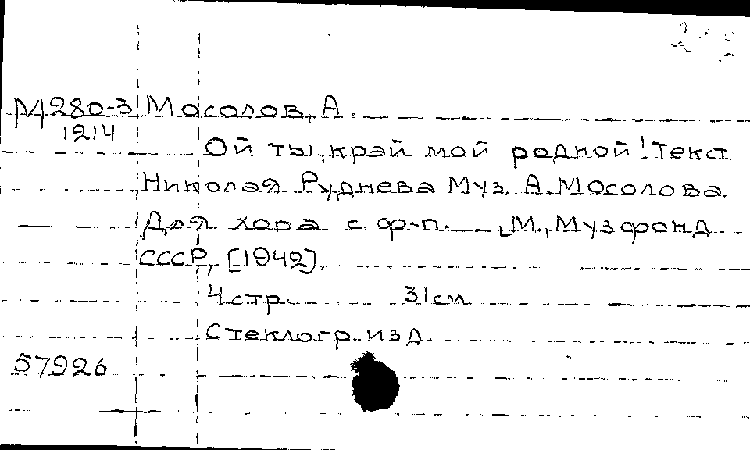 М280-3 Мосолов, А.
1214
Ой ты, край мой родной! Текст
Николая Руднева Муз. А. Мосолова.
Для хора с ф-п. М., Музфонд
СССР, [1942].
4 стр. 31 см
Стеклогр. изд.
57926